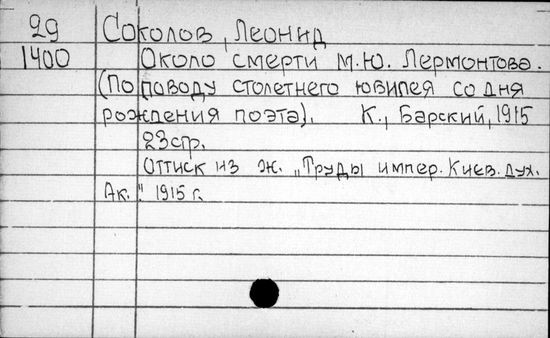 29 Соколов, Леонид
1400 Около смерти М.Ю. Лермонтова.
(По поводу столетнего юбилея со дня
рождения поэта). К., Барский, 1915
23 стр.
Оттиск из ж. „Труды импер. Киев. дух.
Ак." 1915 г.